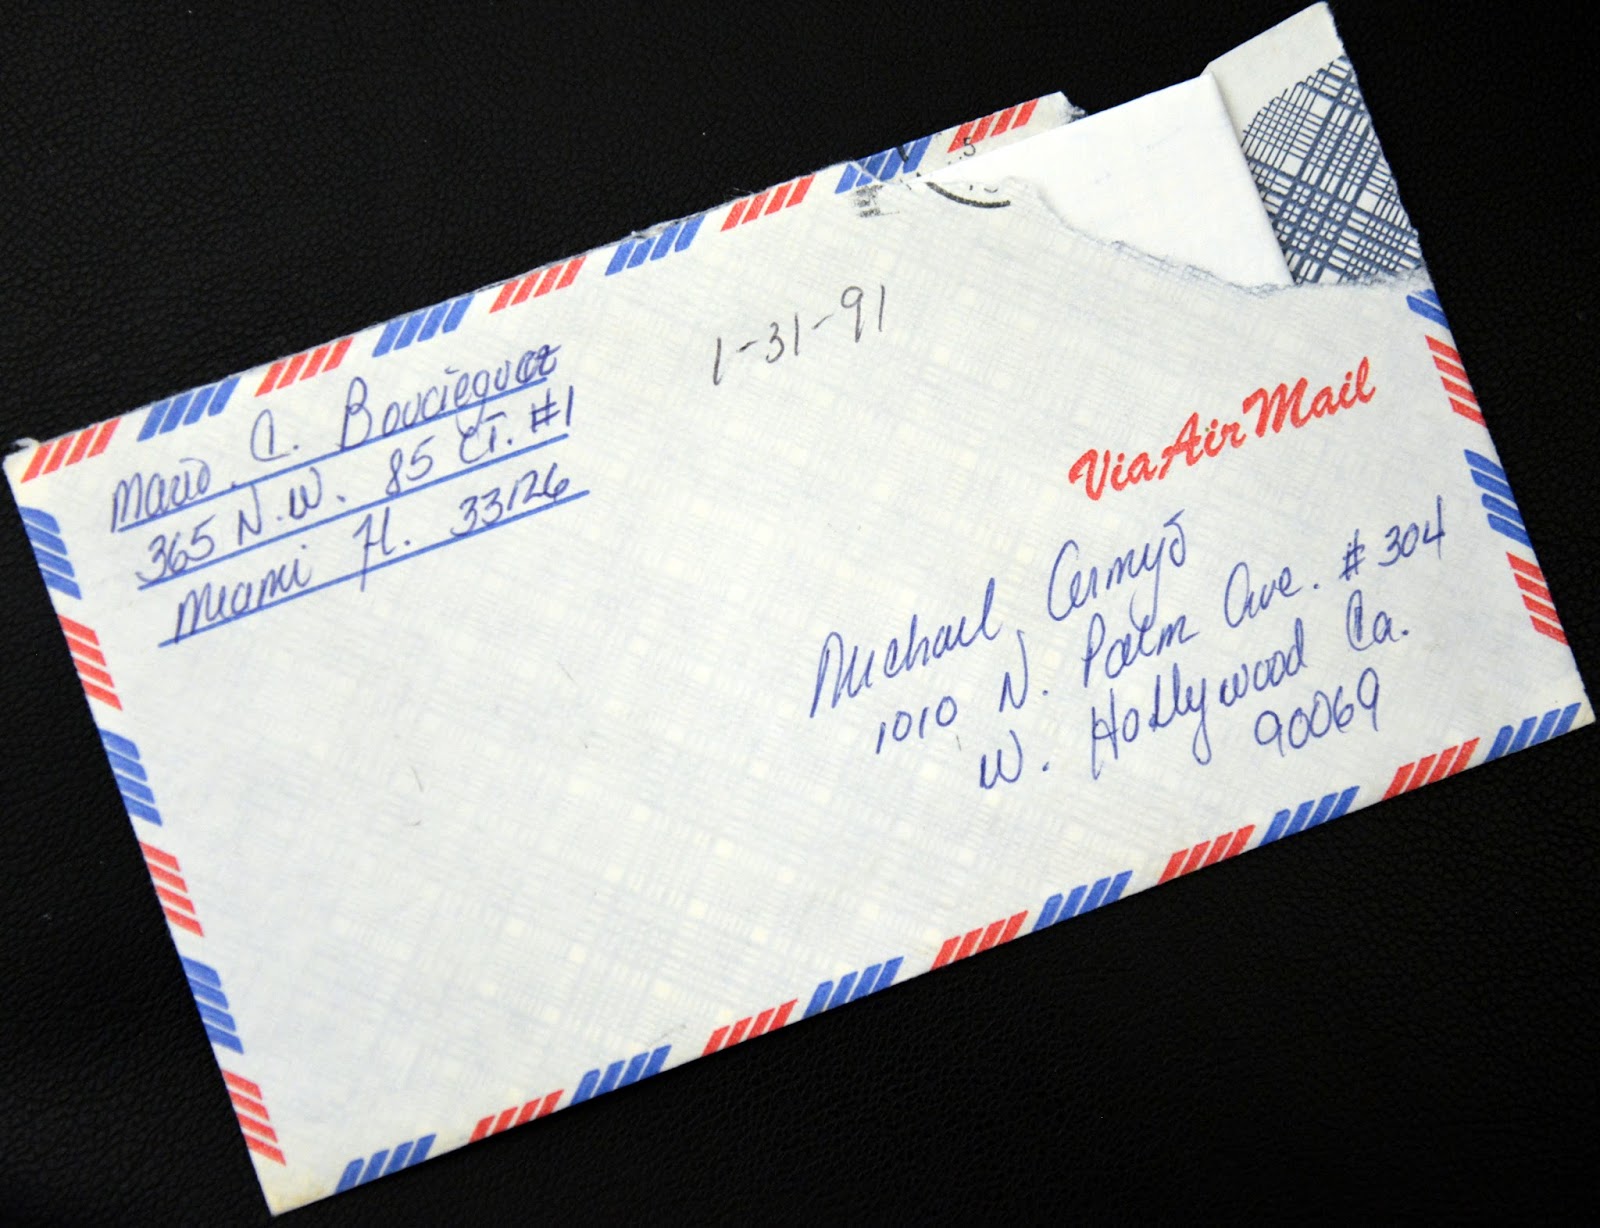 Mario C.
365 N.W. 85 CT. #1
Miami Fl. 33126
1-31-91
Via Air Mail
Michael Cermyŏ
1010 N. Palm Ave. #304
W. Hollywood Ca.
90069